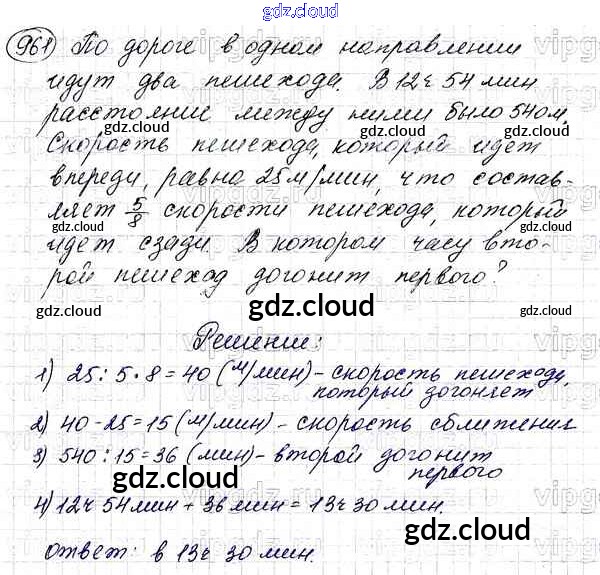 gdz.cloud
961 По дороге в одном направлении
идут два пешехода. В 12ч 54 мин
расстояние между ними было 540м.
gdz.cloud
Скорость пешехода, который идет
впереди, равна 25м/мин, что состав-
ляет 5/8 скорости пешехода, который
gdz.cloud
идет сзади. В котором часу вто-
рой пешеход догонит первого?
gdz.cloud gdz.cloud gdz.cloud
Решение:
1) 25 : 5 · 8 = 40 (м/мин) - скорость пешехода,
который догоняет
2) 40 - 25 = 15 (м/мин) - скорость сближения
3) 540 : 15 = 36 (мин) - второй догонит
первого
gdz.cloud
4) 12ч 54 мин + 36 мин = 13ч 30 мин.
gdz.cloud
Ответ: в 13ч 30 мин.